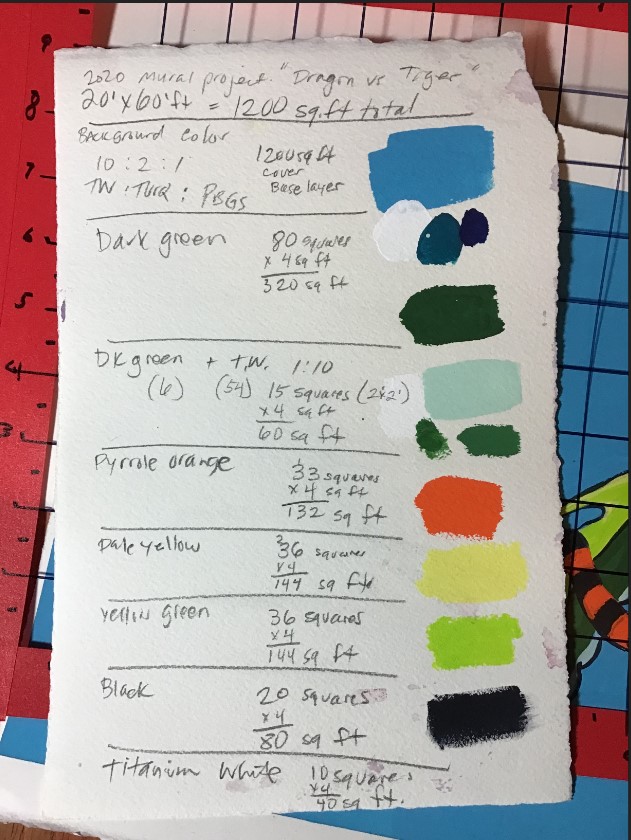 2020 mural project. "Dragon vs Tiger"
20'x60'ft = 1200 sq.ft total
Background color
10 : 2 : 1
TW : Turq : PBGS
1200 sq ft
cover
Base layer
Dark green
80 squares
x 4 sq ft
320 sq ft
DK green + T.W. 1:10
(6) (54) 15 squares (2'x2')
x 4 sq ft
60 sq ft
Pyrrole orange
1
33 squares
x 4 sq ft
132 sq ft
Pale yellow
2
36 squares
x4
144 sq ft
yellow green
36 squares
x4
144 sq ft
Black
20 squares
x4
80 sq ft
Titanium White
10 squares
x4
40 sq ft.
9
8
7
6
5
4
3